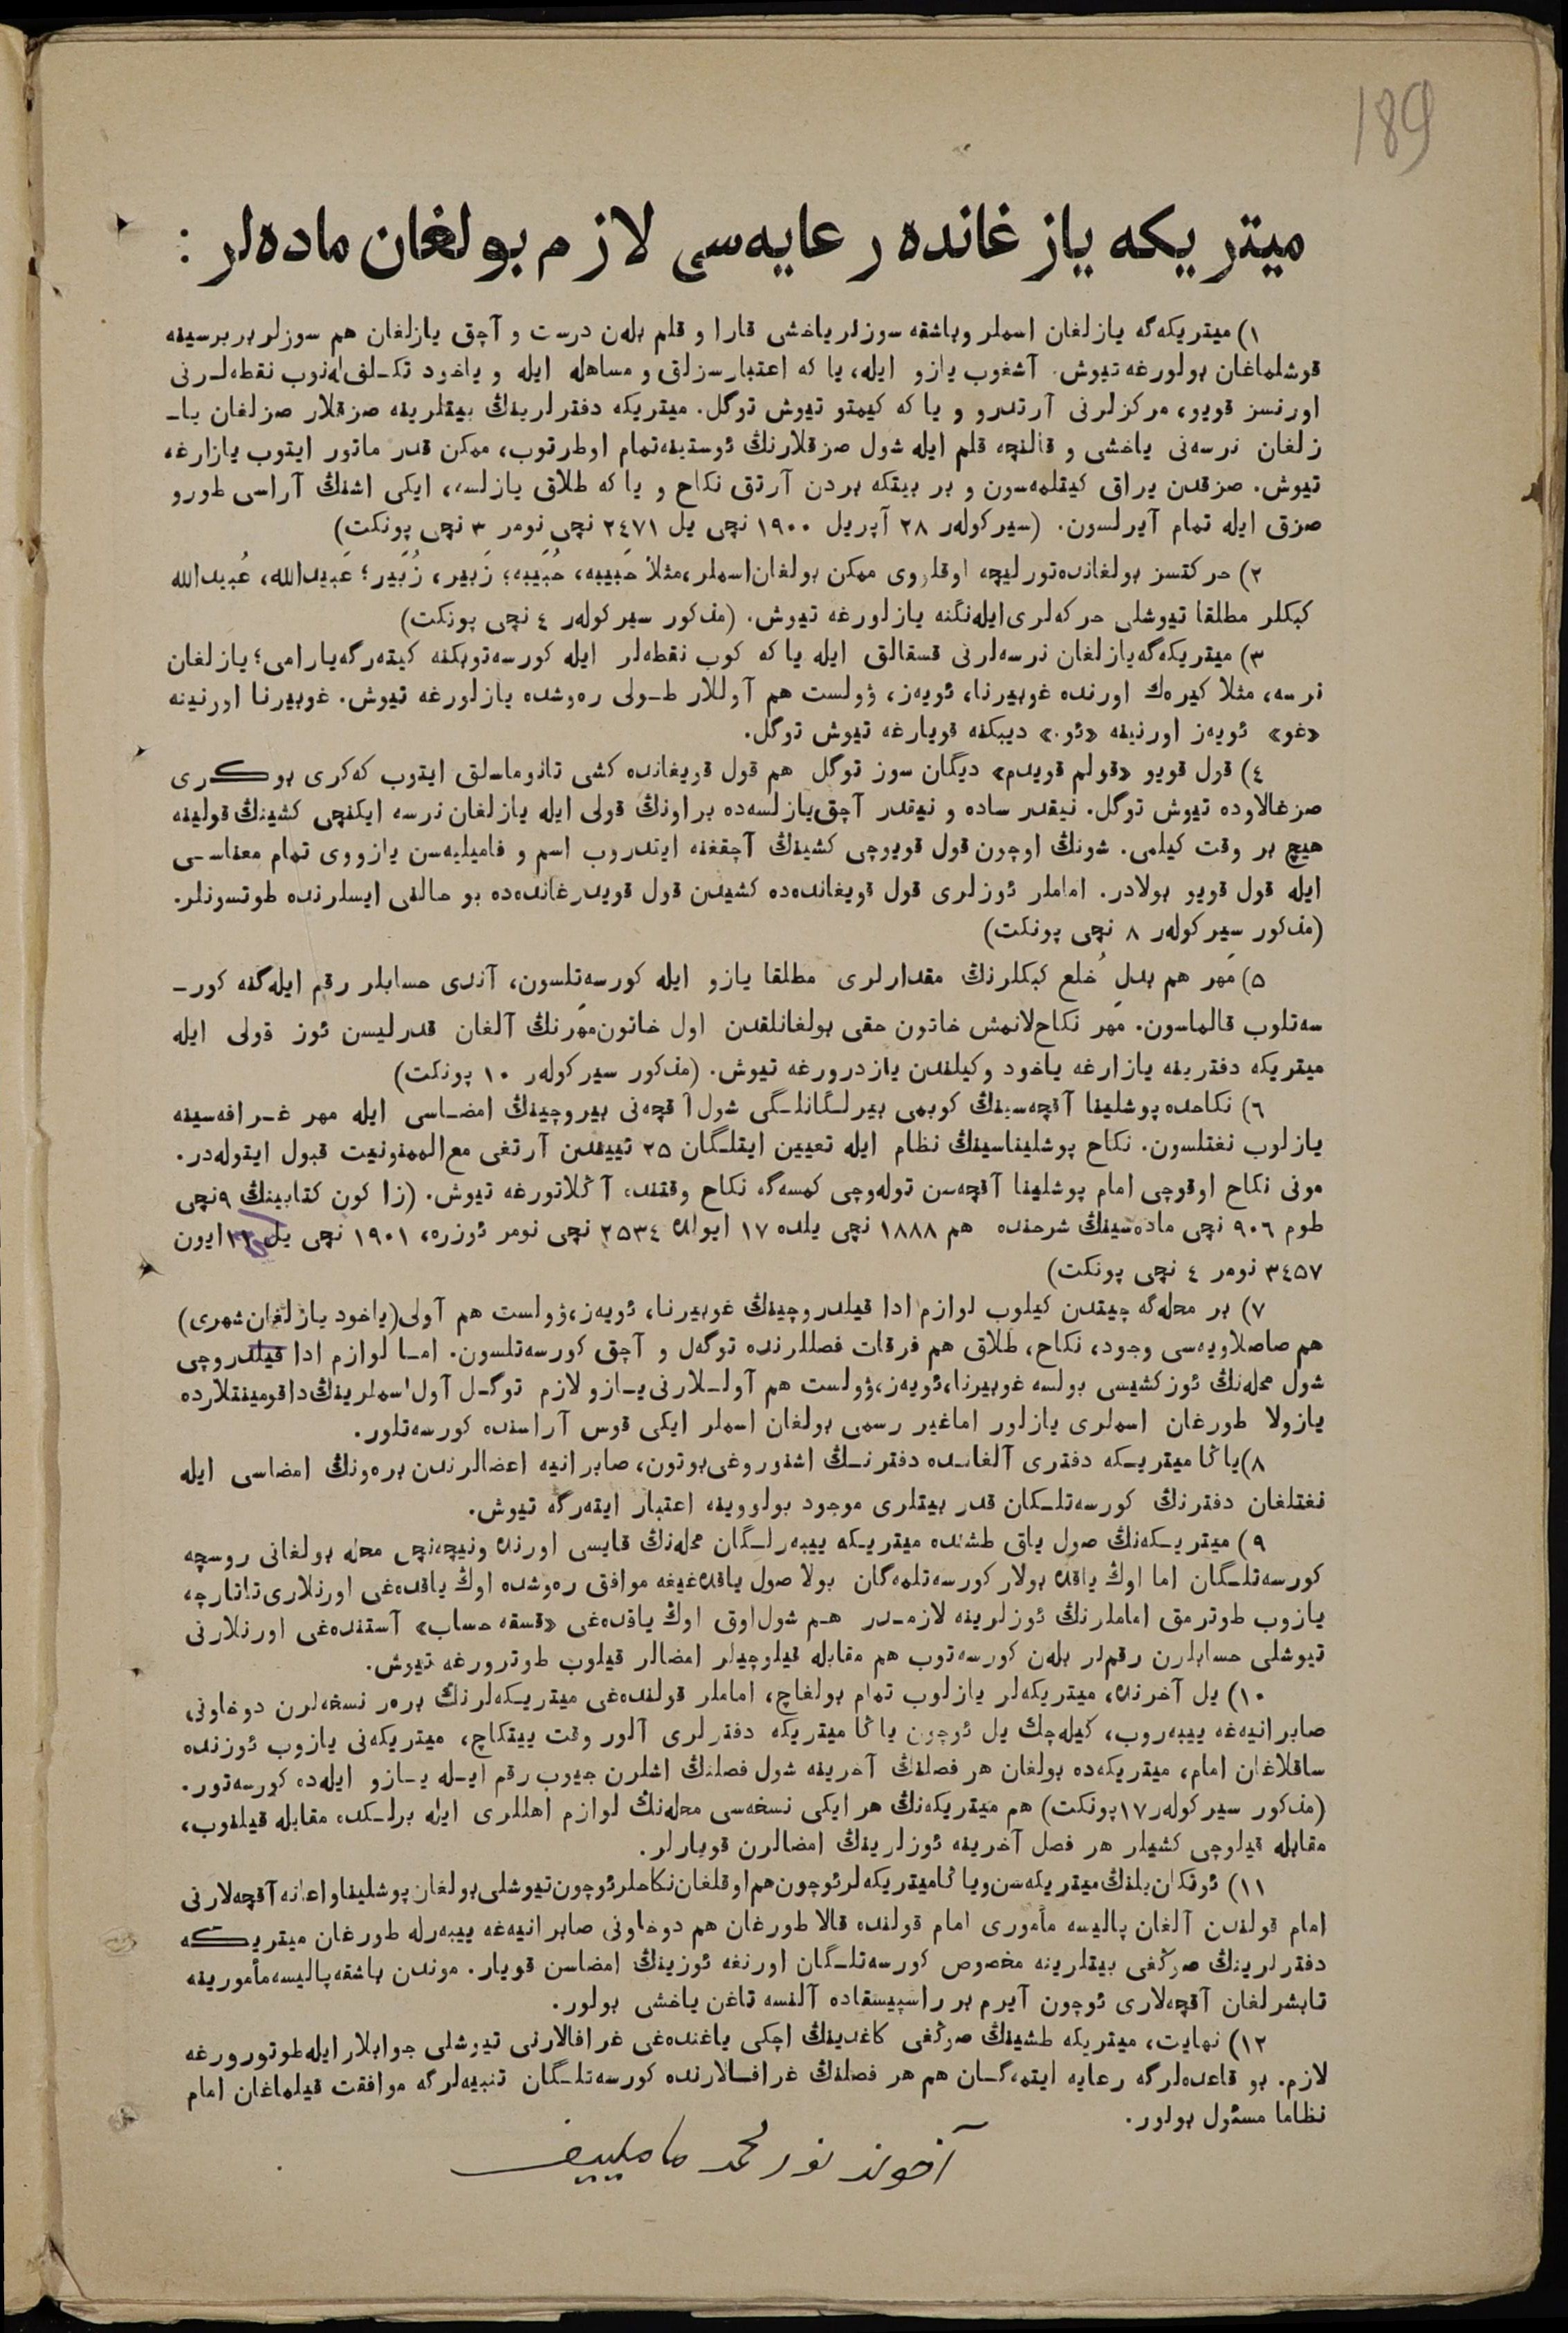 189
میتریکه یازغانده رعایه‌سی لازم بولغان ماده‌لر :
١) میتریکه‌گه یازلغان اسملر وباشقه سوزلر یاخشی قارا و قلم بله‌ن درست و آچق یازلغان هم سوزلر بر برسینه
قوشلماغان بولورغه تیوش. آشغوب یازو ایله، یا که اعتبارسزلق و مساهله ایله و یاخود تکـلف‌له‌نوب نقطه‌لـرنی
اورنسز قویو، مرکزلرنی آرتدرو و یا که کیمتو تیوش توگل. میتریکه دفترلرینڭ بیتلرینه صزقلار صزلغان یا-
زلغان نرسه‌نی یاخشی و قالنچه قلم ایله شول صزقلارنڭ ئوستینه‌تمام اوطرتوب، ممکن قدر ماتور ایتوب یازارغه
تیوش. صزقدن یراق کیتلمه‌سون و بر بیتکه بردن آرتق نکاح و یا که طلاق یازلسه، ایکی اشنڭ آراسی طورو
صزق ایله تمام آیرلسون. (سیرکولەر ٢٨ آپریل ١٩٠٠ نچی یل ٢٤٧١ نچی نومر ٣ نچی پونکت)
٢) حرکتسز بولغانده‌تورلیچه اوقلووی ممکن بولغان‌اسملر،مثلا حَبیبه، حُبَیبه؛ زَبیر، زُبَیر؛ عَبیدالله، عُبیدالله
کبکلر مطلقا تیوشلی حرکه‌لری‌ایله‌نگنه یازلورغه تیوش. (مذکور سیرکولەر ٤ نچی پونکت)
٣) میتریکه‌گه‌یازلغان نرسه‌لرنی قسقالق ایله یا که کوب نقطه‌لر ایله کورسه‌توبکنه کیته‌رگه‌یارامی؛ یازلغان
نرسه، مثلا کیره‌ك اورنده غوبیرنا، ئویه‌ز، ۋولست هم آوللار طـولی ره‌وشده یازلورغه تیوش. غوبیرنا اورنینه
«غو» ئویه‌ز اورنینه «ئو.» دیبکنه قویارغه تیوش توگل.
٤) قول قویو «قولم قویدم» دیگان سوز توگل هم قول قویغانده کشی تانوماسلق ایتوب که‌کری بوکـری
صزغالاوده تیوش توگل. نیقدر ساده و نیقدر آچق‌یازلسه‌ده براونڭ قولی ایله یازلغان نرسه ایکنچی کشینڭ قولینه
هیچ بر وقت کیلمی. شونڭ اوچون قول قویوچی کشینڭ آچقغنه ایتدروب اسم و فامیلیه‌سن یازووی تمام معناسـی
ایله قول قویو بولادر. اماملر ئوزلری قول قویغانده‌ده کشیدن قول قویدرغانده‌ده بو حالنی ایسلرنده طوتسونلر.
(مذکور سیرکولەر ٨ نچی پونکت)
٥) مَهر هم بدل خُلع کبکلرنڭ مقدارلری مطلقا یازو ایله کورسه‌تلسون، آندی حسابلر رقم ایله‌گنه کور-
سه‌تلوب قالماسون. مَهر نکاح‌لانمش خاتون حقی بولغانلقدن اول خاتون‌مَهرنڭ آلغان قدرلیسن ئوز قولی ایله
میتریکه دفترینه یازارغه یاخود وکیلندن یازدرورغه تیوش. (مذکور سیرکولەر ١٠ پونکت)
٦) نکاحده پوشلینا آقچه‌سینڭ کوبمی بیرلـگانلـگی شول آقچه‌نی بیروچینڭ امضـاسی ایله مهر غـرافه‌سینه
یازلوب نغتلسون. نکاح پوشلیناسینڭ نظام ایله تعیین ایتلـگان ٢٥ تییندن آرتغی مع‌الممنونیت قبول ایتوله‌در.
مونی نکاح اوقوچی امام پوشلینا آقچه‌سن توله‌وچی کمسه‌گه نکاح وقتنده آڭلاتورغه تیوش. (زاکون کتابینڭ ٩نچی
طوم ٩٠٦ نچی ماده‌سینڭ شرحنده هم ١٨٨٨ نچی یلده ١٧ ایولده ٢٥٣٤ نچی نومر ئوزره، ١٩٠١ نچی یل ایون
٣٤٥٧ نومر ٤ نچی پونکت)
٧) بر محله‌گه چیتدن کیلوب لوازم ادا قیلدروچینڭ غوبیرنا، ئویه‌ز،ۋولست هم آولی(یاخود یازلغان شهری)
هم صاصلاویه‌سی وجود، نکاح، طلاق هم فرقات فصللرنده توگه‌ل و آچق کورسه‌تلسون. امـا لوازم ادا قیلدروچی
شول محله‌نڭ ئوزکشیسی بولسه غوبیرنا،ئویه‌ز،ۋولست هم آولـلارنی یـازو لازم توگـل آول اسملرینڭ‌داقومینتلارده
یازولا طورغان اسملری یازلور اماغیر رسمی بولغان اسملر ایکی قوس آراسنده کورسه‌تلور.
٨)یاڭا میتریـکه دفتری آلغانـده دفترنـڭ اشنوروغی‌بوتون، صابرانیه اعضالرندن بره‌ونڭ امضاسی ایله
نغتلغان دفترنڭ کورسه‌تلـکان قدر بیتلری موجود بولووینه اعتبار ایته‌رگه تیوش.
٩) میتریـکه‌نڭ صول یاق طشنده میتریـکه ییبه‌رلـگان محله‌نڭ قایسی اورنده ونیچه‌نچی محله بولغانی روسچه
کورسه‌تلـگان اما اوڭ یاقده بولار کورسه‌تلمه‌گان بولا صول یاقده‌غیغه موافق ره‌وشده اوڭ یاقده‌غی اورنلاری‌تاتارچه
یازوب طوترمق اماملرنڭ ئوزلرینه لازمـدر هـم شول‌اوق اوڭ یاقده‌غی «قسقه حساب» آستنده‌غی اورنلارنی
تیوشلی حسابلرن رقم‌لر بله‌ن کورسه‌توب هم مقابله قیلوچیلر امضالر قیلوب طوترورغه تیوش.
١٠) یل آخرنده، میتریکه‌لر یازلوب تمام بولغاچ، اماملر قولنده‌غی میتریـکه‌لرنڭ بره‌ر نسخه‌لرن دوخاونی
صابرانیه‌غه ییبه‌روب، کیله‌چك یل ئوچون یاڭا میتریکه دفترلری آلور وقت ییتکاچ، میتریکه‌نی یازوب ئوزنده
ساقلاغان امام، میتریکه‌ده بولغان هر فصلنڭ آخرینه شول فصلنڭ اشلرن جیوب رقم ایـله یـازو ایله‌ده کورسه‌تور.
(مذکور سیرکولەر ١٧پونکت) هم میتریکه‌نڭ هر ایکی نسخه‌سی محله‌نڭ لوازم اهللری ایله برلـکده مقابله قیلنوب،
مقابله قیلوچی کشیلر هر فصل آخرینه ئوزلرینڭ امضالرن قویارلر.
١١) ئوتکان‌یلنڭ میتریکه‌سن‌ویاڭامیتریکه‌لرئوچون‌هم‌اوقلغان‌نکاحلرئوچون‌تیوشلی‌بولغان‌پوشلیناواعانه‌آقچه‌لارنی
امام قولندن آلغان پالیسه مأموری امام قولنده قالا طورغان هم دوخاونی صابرانیه‌غه ییبه‌رله طورغان میتریـکه
دفترلرینڭ صوڭغی بیتلرینه مخصوص کورسه‌تلـگان اورنغه ئوزینڭ امضاسن قویار. موندن باشقه‌پالیسه‌مأمورینه
تابشرلغان آقچه‌لاری ئوچون آیرم بر راسپیسقاده آلنسه تاغن یاخشی بولور.
١٢) نهایت، میتریکه طشینڭ صوڭغی کاغدینڭ اچکی یاغنده‌غی غرافالارنی تیوشلی جوابلار ایله‌طوتورورغه
لازم. بو قاعده‌لرگه رعایه ایتمه‌گـان هم هر فصلنڭ غرافـالارنده کورسه‌تلـگان تنبیه‌لرگه موافقت قیلماغان امام
نظاما مسئول بولور.
آخوند نورمحمد ماملییف